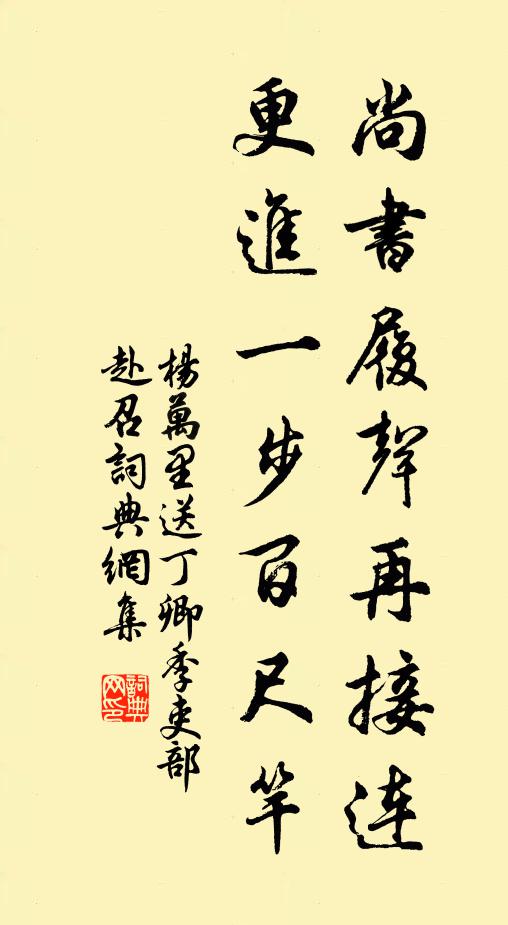 尚書履聲再接連
更進一步百尺竿
楊萬里送丁卿季吏部
赴召詞典網集
詞典网印